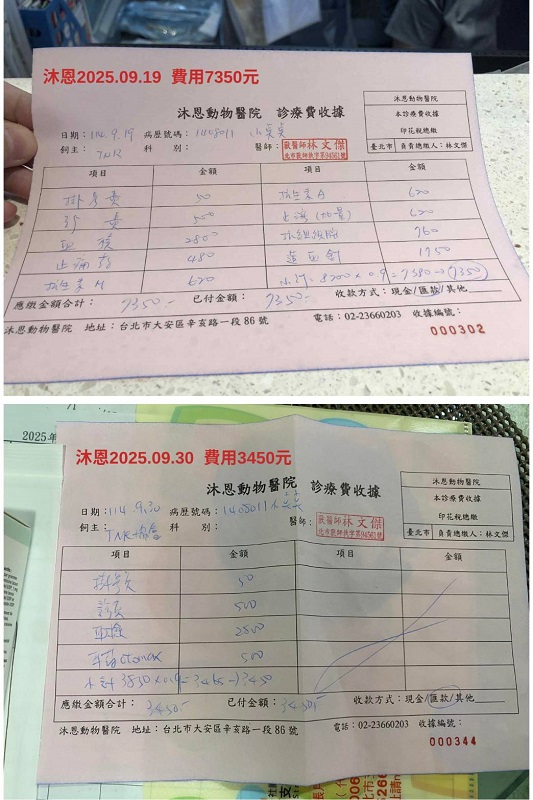 沐恩2025.09.19 費用7350元
沐恩動物醫院 診療費收據
沐恩動物醫院
本診療費收據
印花稅總繳
臺北市 負責總繳人:林文傑
日期:114.9.19 病歷號碼:1408011
飼主:TNR 科 別: 醫師: 獸醫師林文傑
項目 金額 項目 金額
掛號費 50 抗生素A 620
診費 500 620
2800 760
止痛針 480 造血劑 1950
620 小計:8200×0.9=7380→(7350)
應繳金額合計:7350- 已付金額:7350- 收款方式:現金/匯款/其他
沐恩動物醫院 地址:台北市大安區辛亥路一段86號 電話:02-23660203 收據編號:
000302
2025年
沐恩2025.09.30 費用3450元
沐恩動物醫院 診療費收據
沐恩動物醫院
本診療費收據
印花稅總繳
臺北市 負責總繳人:林文傑
日期:114.9.30 病歷號碼:1408011
飼主:TNR協會 科 別: 醫師: 獸醫師林文傑
項目 金額 項目 金額
掛號費 50
診費 500
2800
500
小計 3850×0.9=3465→3450
應繳金額合計:3450- 已付金額:3450- 收款方式:現金/匯款/其他
沐恩動物醫院 地址:台北市大安區辛亥路一段86號 電話:02-23660203 收據編號:
000344